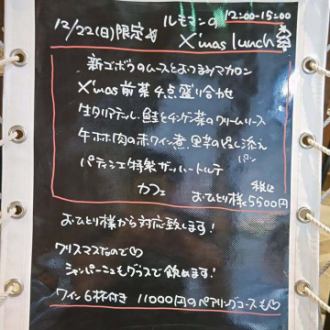 12/22(日)限定 ルモマンの 12:00-15:00
X'mas lunch
新ゴボウのムースとおつまみマカロン
X'mas 前菜4点盛り合わせ
生タリアテッレ 鮭とキノコ菜のクリームソース
牛ホホ肉の赤ワイン煮 里芋のピュレ添え
パン
パティシエ特製ザッハートルテ
カフェ 税込
おひとり様 5500円
おひとり様から対応致します!
クリスマスなので♡
シャンパーニュもグラスで飲めます!
ワイン6杯付き 11000円のペアリングコースも♡